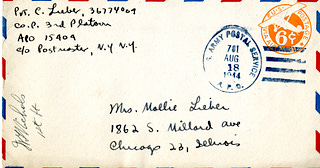 Pvt. C. Lieber, 36774009
Co. P. 3rd Platoon
APO 15409
c/o Postmaster, N.Y. N.Y.
U.S. ARMY POSTAL SERVICE
781
AUG
18
1944
A.P.O.
6¢
Mrs. Mollie Lieber
1862 S. Millard ave
Chicago 23, Illinois